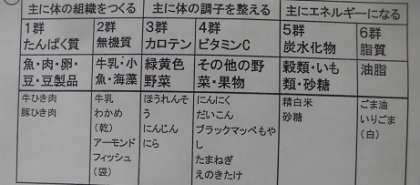 主に体の組織をつくる 主に体の調子を整える 主にエネルギーになる
1群 2群 3群 4群 5群 6群
たんぱく質 無機質 カロテン ビタミンC 炭水化物 脂質
魚・肉・卵・豆・豆製品
牛乳・小魚・海藻
緑黄色野菜
その他の野菜・果物
穀類・いも類・砂糖
油脂
牛ひき肉
豚ひき肉
牛乳
わかめ
(乾)
アーモンド
フィッシュ
(袋)
ほうれんそ
う
にんじん
にら
にんにく
だいこん
ブラックマッペもや
し
たまねぎ
えのきたけ
精白米
砂糖
ごま油
いりごま
(白)